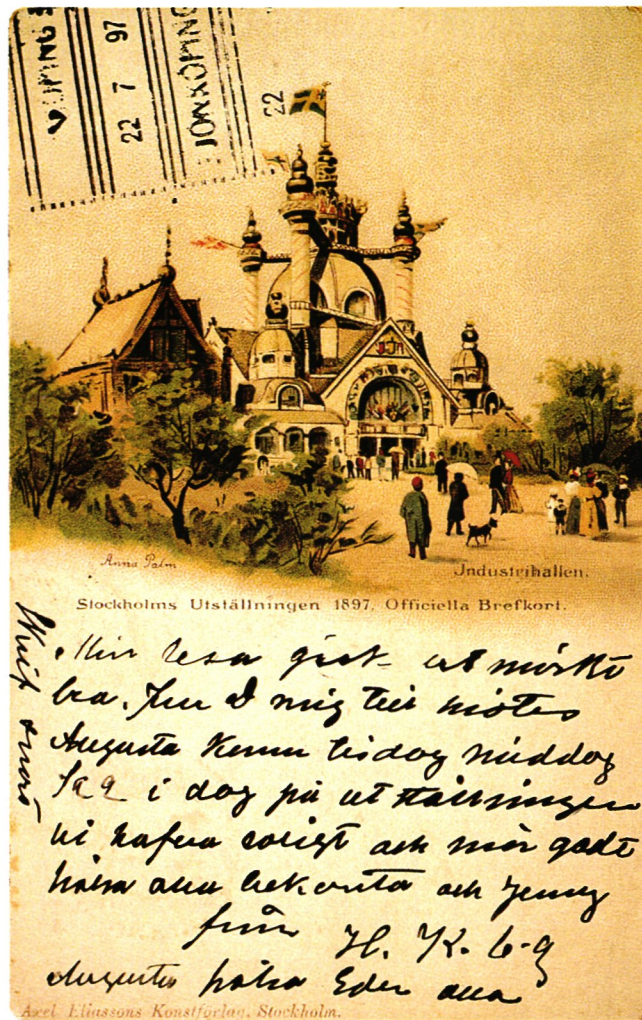 KÖPING
22 7 97
JÖNKÖPING
22
Anna Palm
Industrihallen.
Stockholms Utställningen 1897. Officiella Brefkort.
Skrif snart
Min resa gick ut mörkt
bra. Jag mig till mötes
Augusta kommer tisdag middag
i dag på utställningen
vi hafva roligt och mår godt
hälsa alla bekanta och Jenny
från H. K. b-g
Augusta hälsa Eder alla
Axel Eliassons Konstförlag, Stockholm.